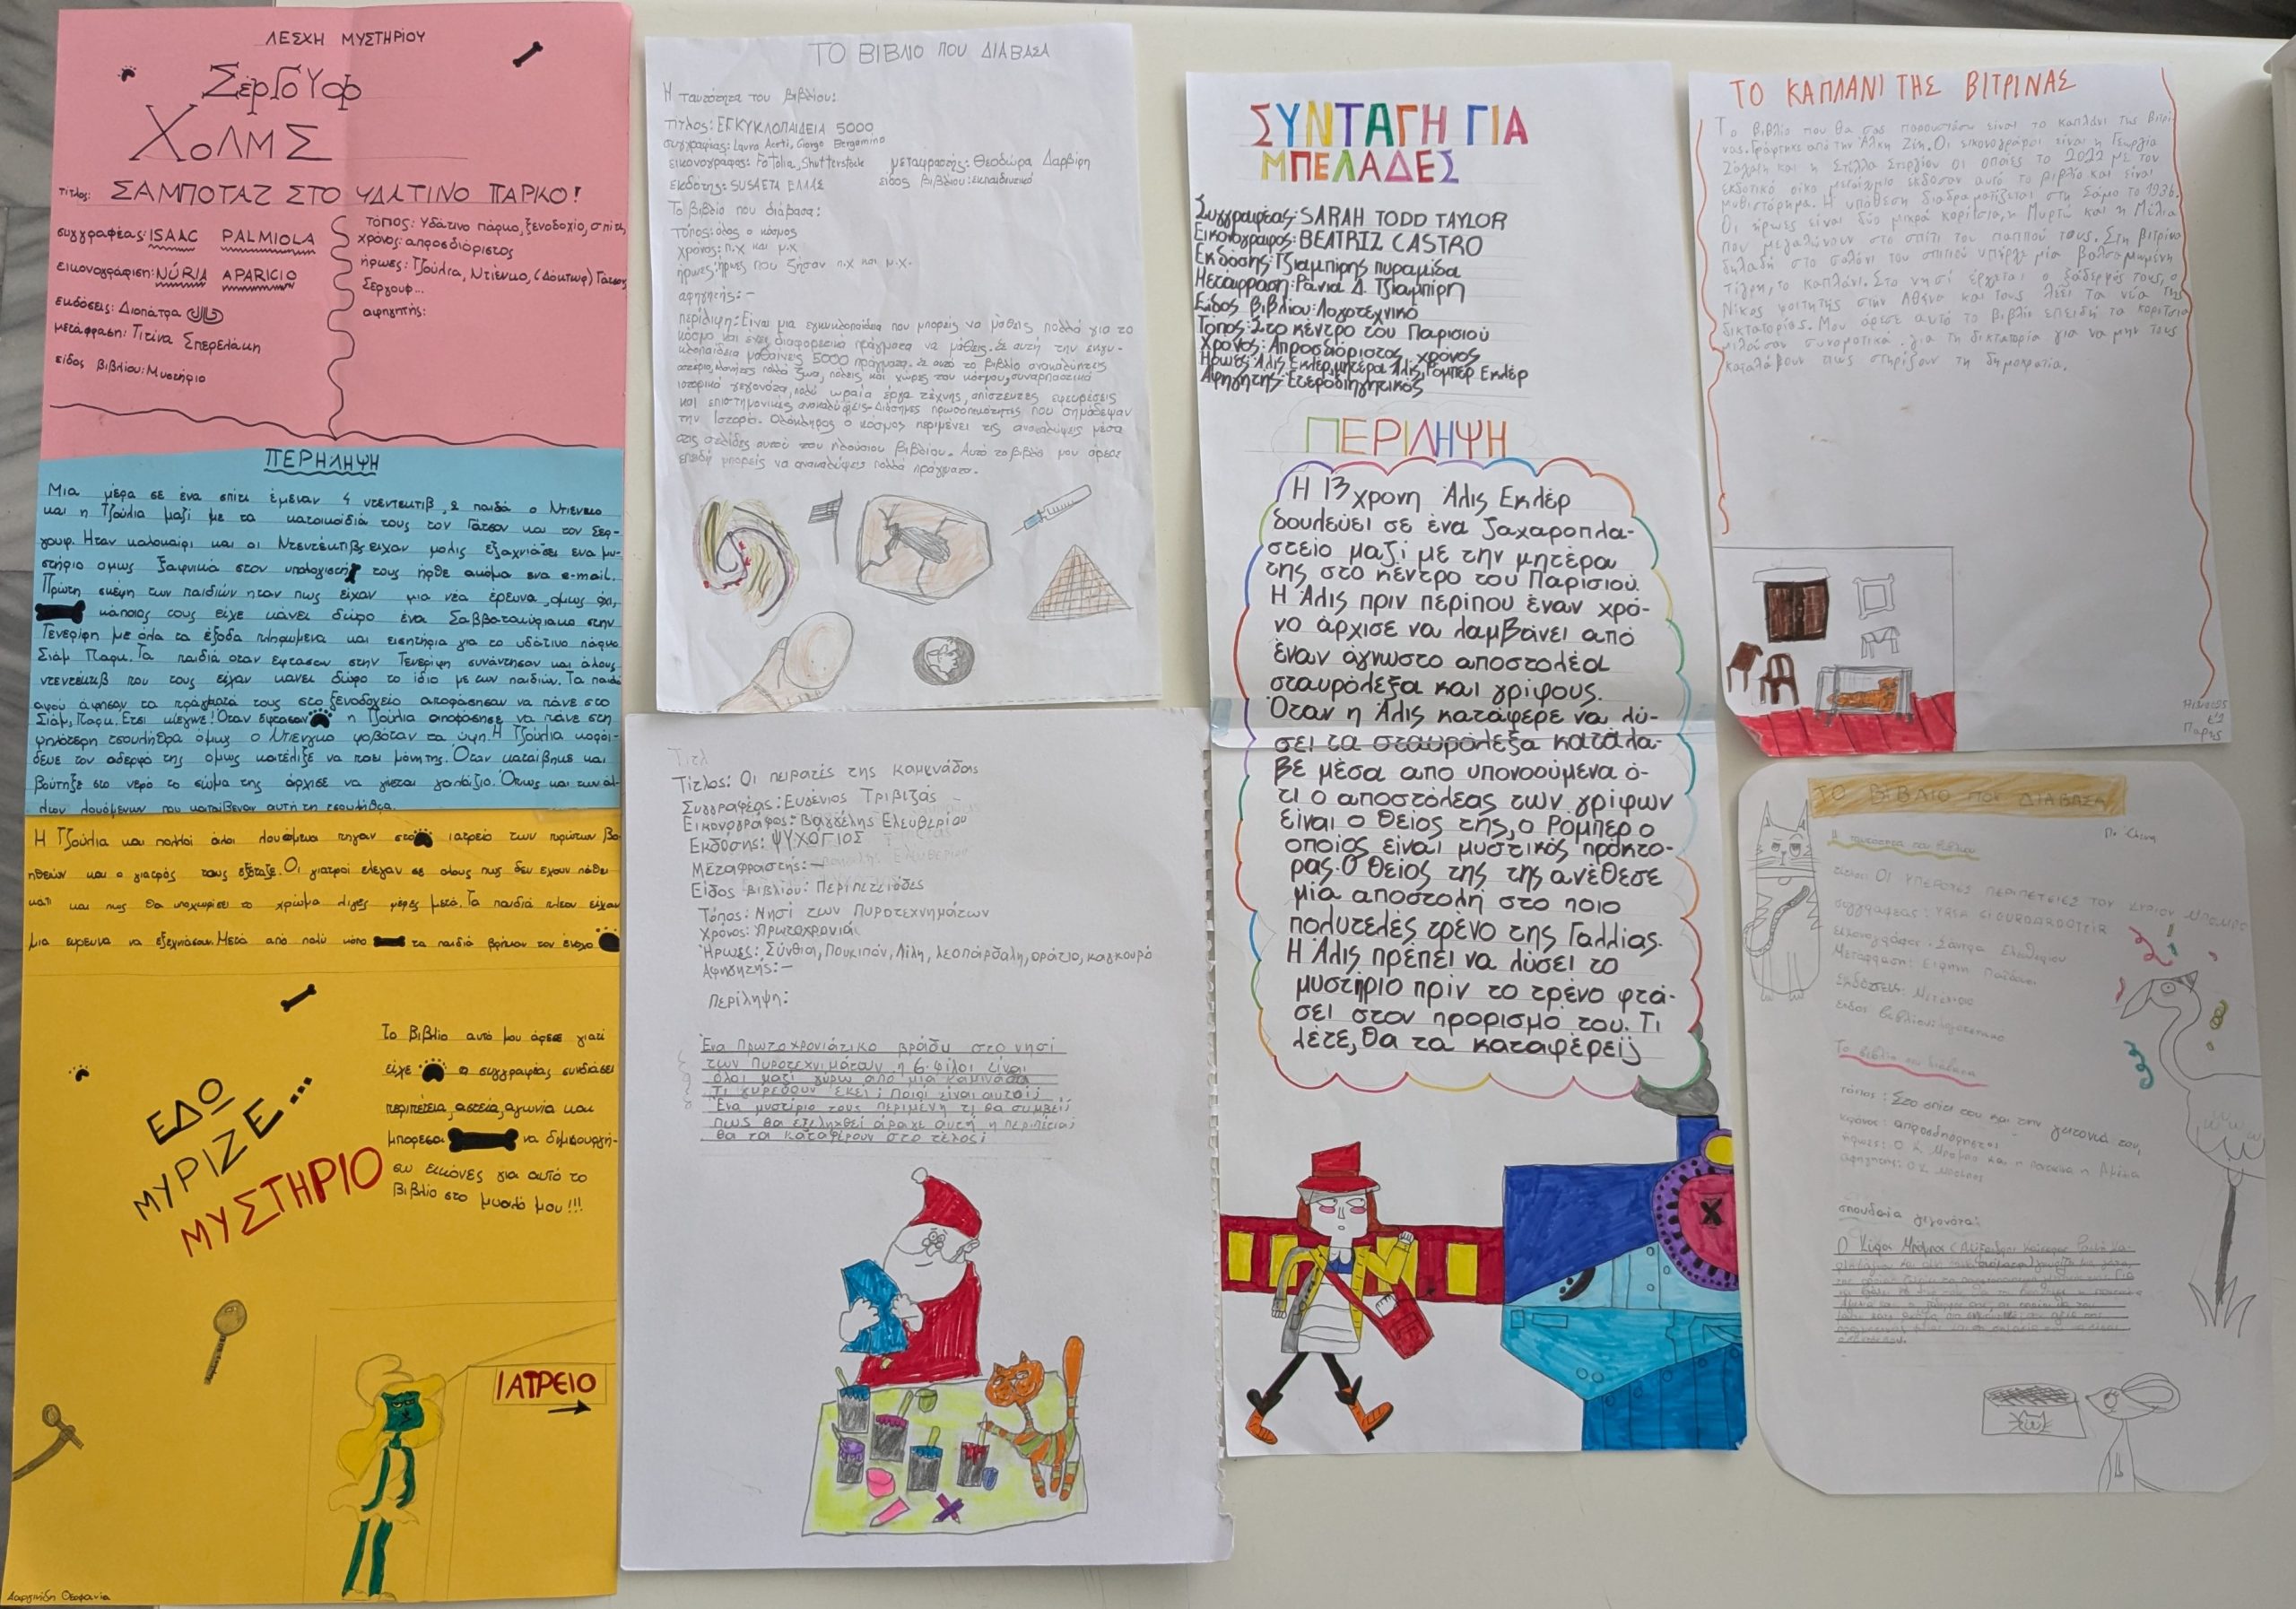 ΛΕΣΧΗ ΜΥΣΤΗΡΙΟΥ
ΣέρΓΟΥφ
ΧΟΛΜΣ
τίτλος: ΣΑΜΠΟΤΑΖ ΣΤΟ ΥΔΑΤΙΝΟ ΠΑΡΚΟ!
συγγραφέας: ISAAC PALMIOLA
εικονογράφιση: NÚRIA APARICIO
εκδόσεις: Διοπάτρα
μετάφραση: Τιτίνα Σπερελάκη
είδος βιβλίου: Μυστήριο
τόπος: Υδάτινο πάρκο, ξενοδοχίο, σπίτι,
χρόνος: απροσδιόριστος
ήρωες: Τζούλια, Ντιένκο, (Δόκτωρ) Γάτσον,
Σεργουφ...
αφηγητής:
ΠΕΡΗΛΗΨΗ
Μια μέρα σε ένα σπίτι έμεναν 4 ντεντεκτιβ, 2 παιδά ο Ντιενκο
και η Τζούλια μαζί με τα κατοικοίδιά τους τον Γάτσον και τον Σερ-
γουφ. Ηταν καλοκαίρι και οι Ντεντέκτιβς είχαν μολις εξαχνιάσει ενα μυ-
στήριο ομως ξαφνικά στον υπολογιστή τους ήρθε ακόμα ενα e-mail.
Πρώτη σκέψη των παιδιών ηταν πως είχαν μια νέα έρευνα, ομως όχι,
κάποιος τους είχε κάνει δώρο ένα Σαββατοκύριακο στην
Τενερίφη με όλα τα έξοδα πληρωμενα και εισητήρια για το υδάτινο πάρκο
Σιάμ Παρκ. Τα παιδιά οταν εφτασαν στην Τενερίφη συνάντησαν και άλους
ντεντέκτιβ που τους είχαν κανει δώρο το ίδιο με των παιδιών. Τα παιδιά
αφού άφησαν τα πράγματά τους στο ξενοδοχείο αποφάσησαν να πάνε στο
Σιάμ Παρκ. Ετσι κι έγινε! Οταν εφτασαν η Τζούλια αποφάσησε να πάνε στη
ψηλότερη τσουλήθρα όμως ο Ντιενγκο φοβόταν τα ύψη. Η Τζούλια κοροί-
δευε τον αδερφό της ομως κατέληξε να παει μόνη της. Όταν κατέβηκε και
βούτηξε στο νερό το σώμα της άρχισε να γίνεται γαλάζιο. Οπως και των άλ-
λων λουόμενων που κατέβεναν αυτή τη τσουλήθρα.
Η Τζούλια και πολλοί άλλοι λουόμενοι πηγαν στο ιατρείο των πρώτων βο-
ηθειών και ο γιατρός τους εξέταζε. Οι γιατροί ελεγαν σε ολους πως δεν εχουν πάθει
κάτι και πως θα υποχωρίσει το χρώμα λίγες μέρες μετά. Τα παιδιά πλέον είχαν
μια ευρευνα να εξεχνιάσουν. Μετά από πολύ κόπο τα παιδιά βρήκαν τον ένοχο
Το βιβλίο αυτό μου άρεσε γιατί
είχε ο συγγραφέας συνδιάσει
περιπέτεια, αστεία, αγωνία και
μπορεσα να δημιουργή-
σω εικόνες για αυτό το
βιβλίο στο μυαλό μου!!!
ΕΔΩ
ΜΥΡΙΖΕ...
ΜΥΣΤΗΡΙΟ
ΙΑΤΡΕΙΟ
Θεοφανία
ΤΟ ΒΙΒΛΙΟ ΠΟΥ ΔΙΑΒΑΣΑ
Η ταυτότητα του βιβλίου:
τίτλος: ΕΓΚΥΚΛΟΠΑΙΔΕΙΑ 5000
συγγραφέας: Laura Aceti, Giorgo Bergamino
εικονογράφος: Fotolia, Shutterstock μεταφραστής: Θεοδώρα Δαρβίρη
εκδότης: SUSAETA ΕΛΛΑΣ είδος βιβλίου: εκπαιδευτικό
Το βιβλίο που διάβασα:
τόπος: όλος ο κόσμος
χρόνος: π.χ και μ.χ
ήρωες: ήρωες που ζήσαν π.χ και μ.χ.
αφηγητής: -
περίληψη: Είναι μια εγκυκλοπαίδεια που μπορείς να μάθεις πολλά για το
κόσμο και έχει διαφορετικά πράγματα να μάθεις. Σε αυτή την εγκυ-
κλοπαίδεια μαθαίνεις 5000 πράγματα. Σε αυτό το βιβλίο ανακαλύπτεις
αστέρια, πλανήτες πολλά ζώα, πόλεις και χώρες του κόσμου, συναρπαστικά
ιστορικά γεγονότα, πολύ ωραία έργα τέχνης, απίστευτες εφευρέσεις
και επιστημονικές ανακαλύψεις. Διάσημες προσωπικότητες που σημάδεψαν
την Ιστορία. Ολόκληρος ο κόσμος περιμένει τις ανακαλύψεις μέσα
στις σελίδες αυτού του πλούσιου βιβλίου. Αυτό το βιβλίο μου άρεσε
επειδή μπορείς να ανακαλύψεις πολλά πράγματα.
Τιτλ
Τίτλος: Οι πειρατές της καμινάδας
Συγγραφέας: Ευγένιος Τριβιζάς
Εικονογράφος: Βαγγέλης Ελευθερίου
Εκδόσης: ΨΥΧΟΓΙΟΣ
Μεταφραστής: -
Είδος βιβλίου: Περιπετειώδες
Τόπος: Νησί των Πυροτεχνημάτων
Χρόνος: Πρωτοχρονιά
Ήρωες: Σύνθια, Πουκιπόν, Λίλη, λεοπάρδαλη, οράτιο, καγκουρό
Αφηγητής: -
περίληψη:
Ένα Πρωτοχρονιάτικο βράδυ στο νησί
των Πυροτεχνιμάτων η 6 φίλοι είναι
όλοι μαζί γύρω από μια καμινάδα
Τι γυρεύουν εκεί; Ποιοί είναι αυτοί;
Ένα μυστίριο τους περιμένη τι θα συμβεί;
πως θα εξεληχθεί άραγε αυτή η περιπέτεια;
θα τα καταφέρουν στο τέλος;
ΣΥΝΤΑΓΗ ΓΙΑ
ΜΠΕΛΑΔΕΣ
Συγγραφέας: SARAH TODD TAYLOR
Εικονογραφος: BEATRIZ CASTRO
Εκδόσης: Τζιαμπίρης πυραμίδα
Μετάφραση: Ράνια Δ. Τζιαμπίρη
Είδος βιβλίου: Λογοτεχνικό
Τόπος: Στο κέντρο του Παρισιού
Χρόνος: Απροσδιόριστος χρόνος
Ηρωες: Άλις Εκλέρ, μητέρα Άλις, Ρόμπερ Εκλέρ
Αφηγητής: Ετεροδιηγητικός
ΠΕΡΙΛΗΨΗ
Η 13χρονη Άλις Εκλέρ
δουλεύει σε ένα ζαχαροπλα-
στείο μαζί με την μητέρα
της στο κέντρο του Παρισιού.
Η Άλις πριν περίπου έναν χρό-
νο άρχισε να λαμβάνει από
έναν άγνωστο αποστολέα
σταυρόλεξα και γρίφους.
Όταν η Άλις κατάφερε να λύ-
σει τα σταυρόλεξα κατάλα-
βε μέσα απο υπονοούμενα ό-
τι ο αποστολέας των γρίφων
είναι ο θείος της, ο Ρόμπερ ο
οποίος είναι μυστικός πράκτο-
ρας. Ο θείος της της ανέθεσε
μία αποστολή στο ποιο
πολυτελές τρένο της Γαλλίας.
Η Άλις πρέπει να λύσει το
μυστήριο πρίν το τρένο φτά-
σει στον προρισμό του. Τι
λέτε, θα τα καταφέρει;
ΤΟ ΚΑΠΛΑΝΙ ΤΗΣ ΒΙΤΡΙΝΑΣ
Το βιβλίο που θα σας παρουσιάσω είναι το καπλάνι της βιτρί-
νας. Γράφτηκε από την Άλκη Ζέη. Οι εικονογράφοι είναι η Γεωργία
Ζάχαρη και η Στέλλα Στεργίου οι οποίες το 2022 με τον
εκδοτικό οίκο μεταίχμιο έκδοσαν αυτό το βιβλίο και είναι
μυθιστόρημα. Η υπόθεση διαδραματίζεται στη Σάμο το 1936.
Οι ήρωες είναι δύο μικρά κορίτσια, η Μυρτώ και η Μέλια
που μεγαλώνουν στο σπίτι του παππού τους. Στη βιτρίνα
δηλαδή στο σαλόνι του σπιτιού υπάρχει μία βαλσαμωμένη
τίγρη, το καπλάνι. Στο νησί έρχεται ο ξάδερφός τους, ο
Νίκος φοιτητής στην Αθήνα και τους λέει τα νέα της
δικτατορίας. Μου άρεσε αυτό το βιβλίο επειδή τα κορίτσια
μιλούσαν συνομοτικά για τη δικτατορία για να μην τους
καταλάβουν πως στηρίζουν τη δημοκρατία.
ΤΟ ΒΙΒΛΙΟ ΠΟΥ ΔΙΑΒΑΣΑ
Η ταυτότητα του βιβλίου
τίτλος: ΟΙ ΥΠΕΡΟΧΕΣ ΠΕΡΙΠΕΤΕΙΕΣ ΤΟΥ ΚΥΡΙΟΥ
συγγραφέας: YRSA SIGURDARDOTTIR
εικονογράφος: Σάντρα Ελευθερίου
Μετάφραση: Ειρήνη
Εκδόσεις: Μεταίχμιο
Το βιβλίο που διάβασα
τόπος: Στο σπίτι του και την γειτονιά του,
σπουδαία γεγονότα: